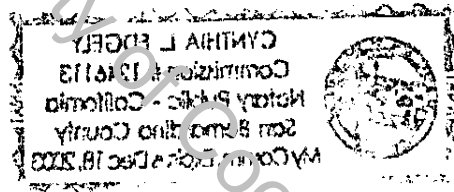 CYNTHIA L. EDGELY
Commission # 1246113
Notary Public - California
San Bernardino County
My Comm. Expires Dec 18, 2003
y of Coo